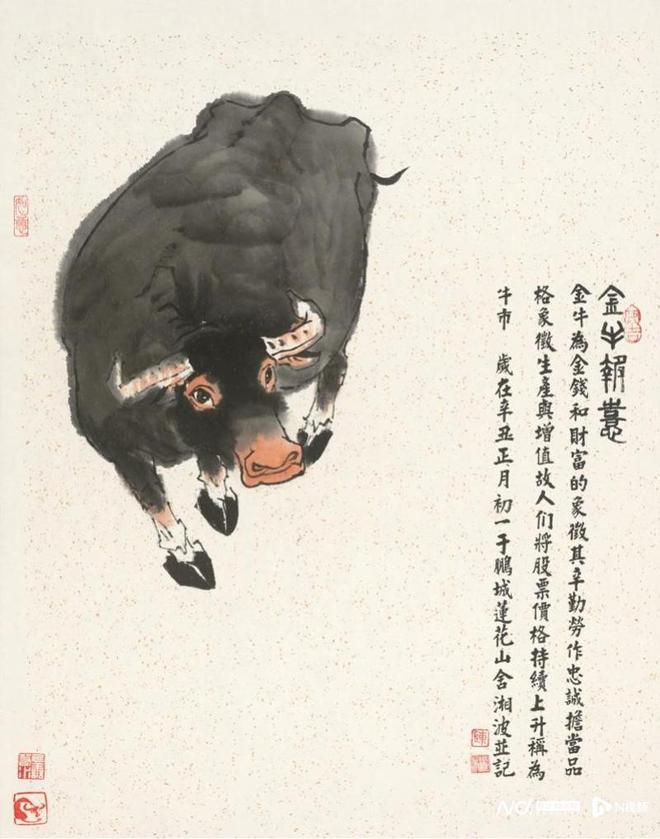 金牛報喜
金牛為金錢和財富的象徵其辛勤勞作忠誠擔當品
格象徵生產與增值故人们將股票價格持續上升稱為
牛市 歲在辛丑正月初一于鵬城蓮花山舍湘波並記
N视频